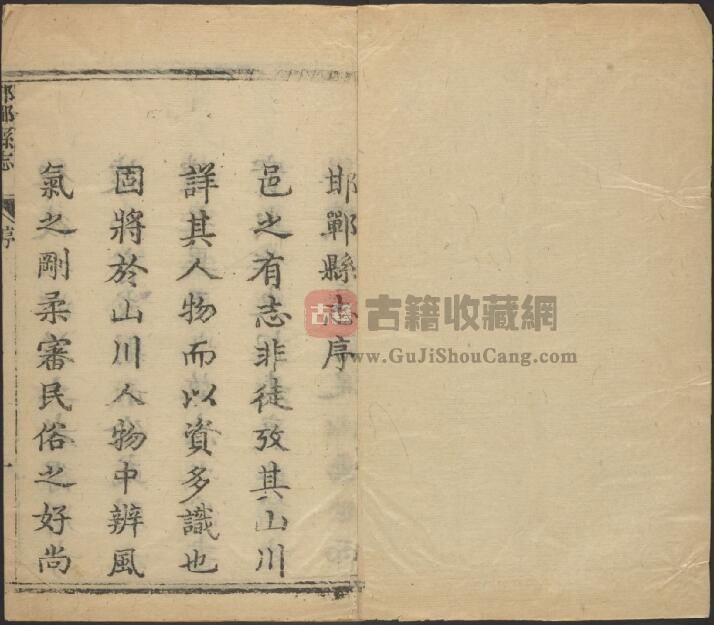 邯鄲縣志序
邑之有志非徒攷其山川
詳其人物而以資多識也
固將於山川人物中辨風
氣之剛柔審民俗之好尚
邯鄲縣志
序
一
古籍
古籍收藏網
www.GuJiShouCang.com